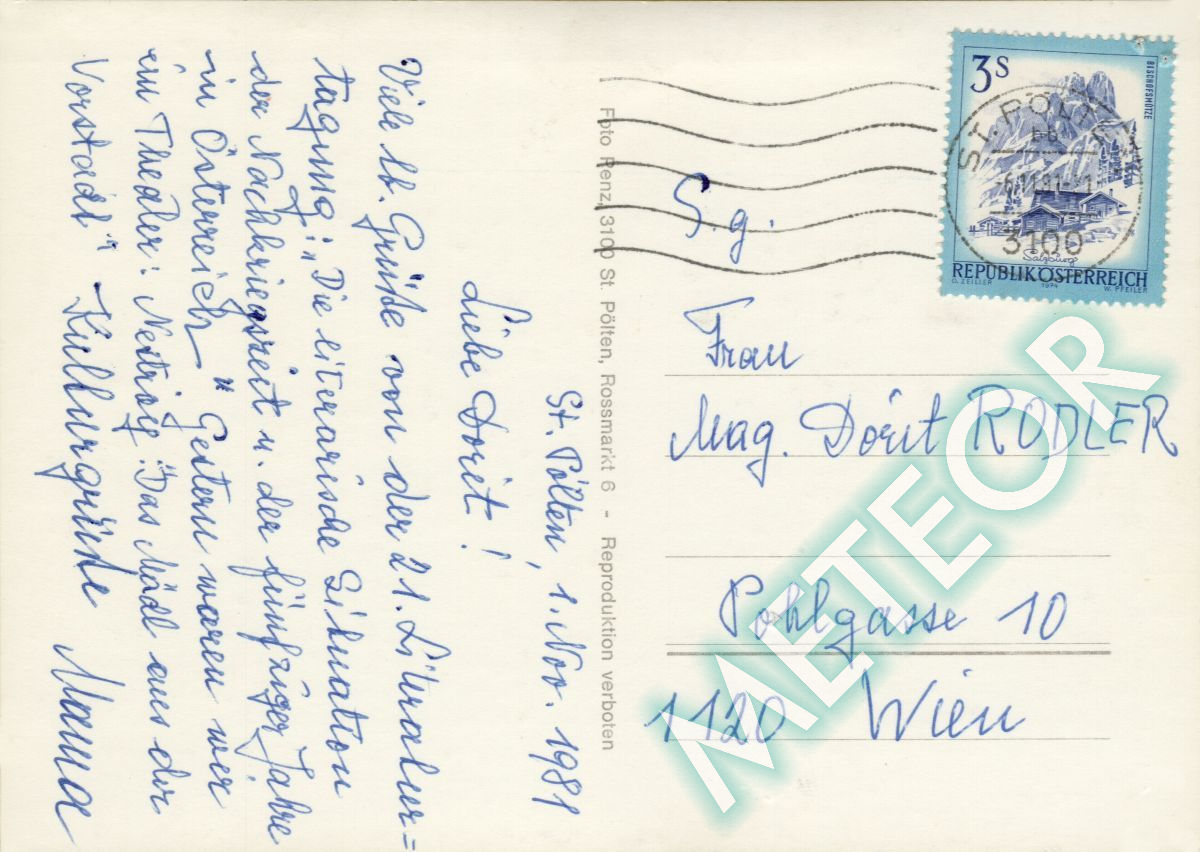 St. Pölten, 1. Nov. 1981
Liebe Dorit!
Viele lb. Grüße von der 21. Literatur-
tagung: „Die literarische Situation
der Nachkriegszeit u. der fünfziger Jahre
in Österreich" Gestern waren wir
im Theater: Nestroy: „Das Mädl aus der
Vorstadt" Kulturgrüße Mama
Foto Renz, 3100 St. Pölten, Rossmarkt 6 - Reproduktion verboten
S.g.
Frau
Mag. Dorit RODLER
Pohlgasse 10
1120 Wien
3S
BISCHOFSMÜTZE
Salzburg
REPUBLIK ÖSTERREICH
O. ZEILLER 1974 W. PFEILER
ST. PÖLTEN
3100
METEOR